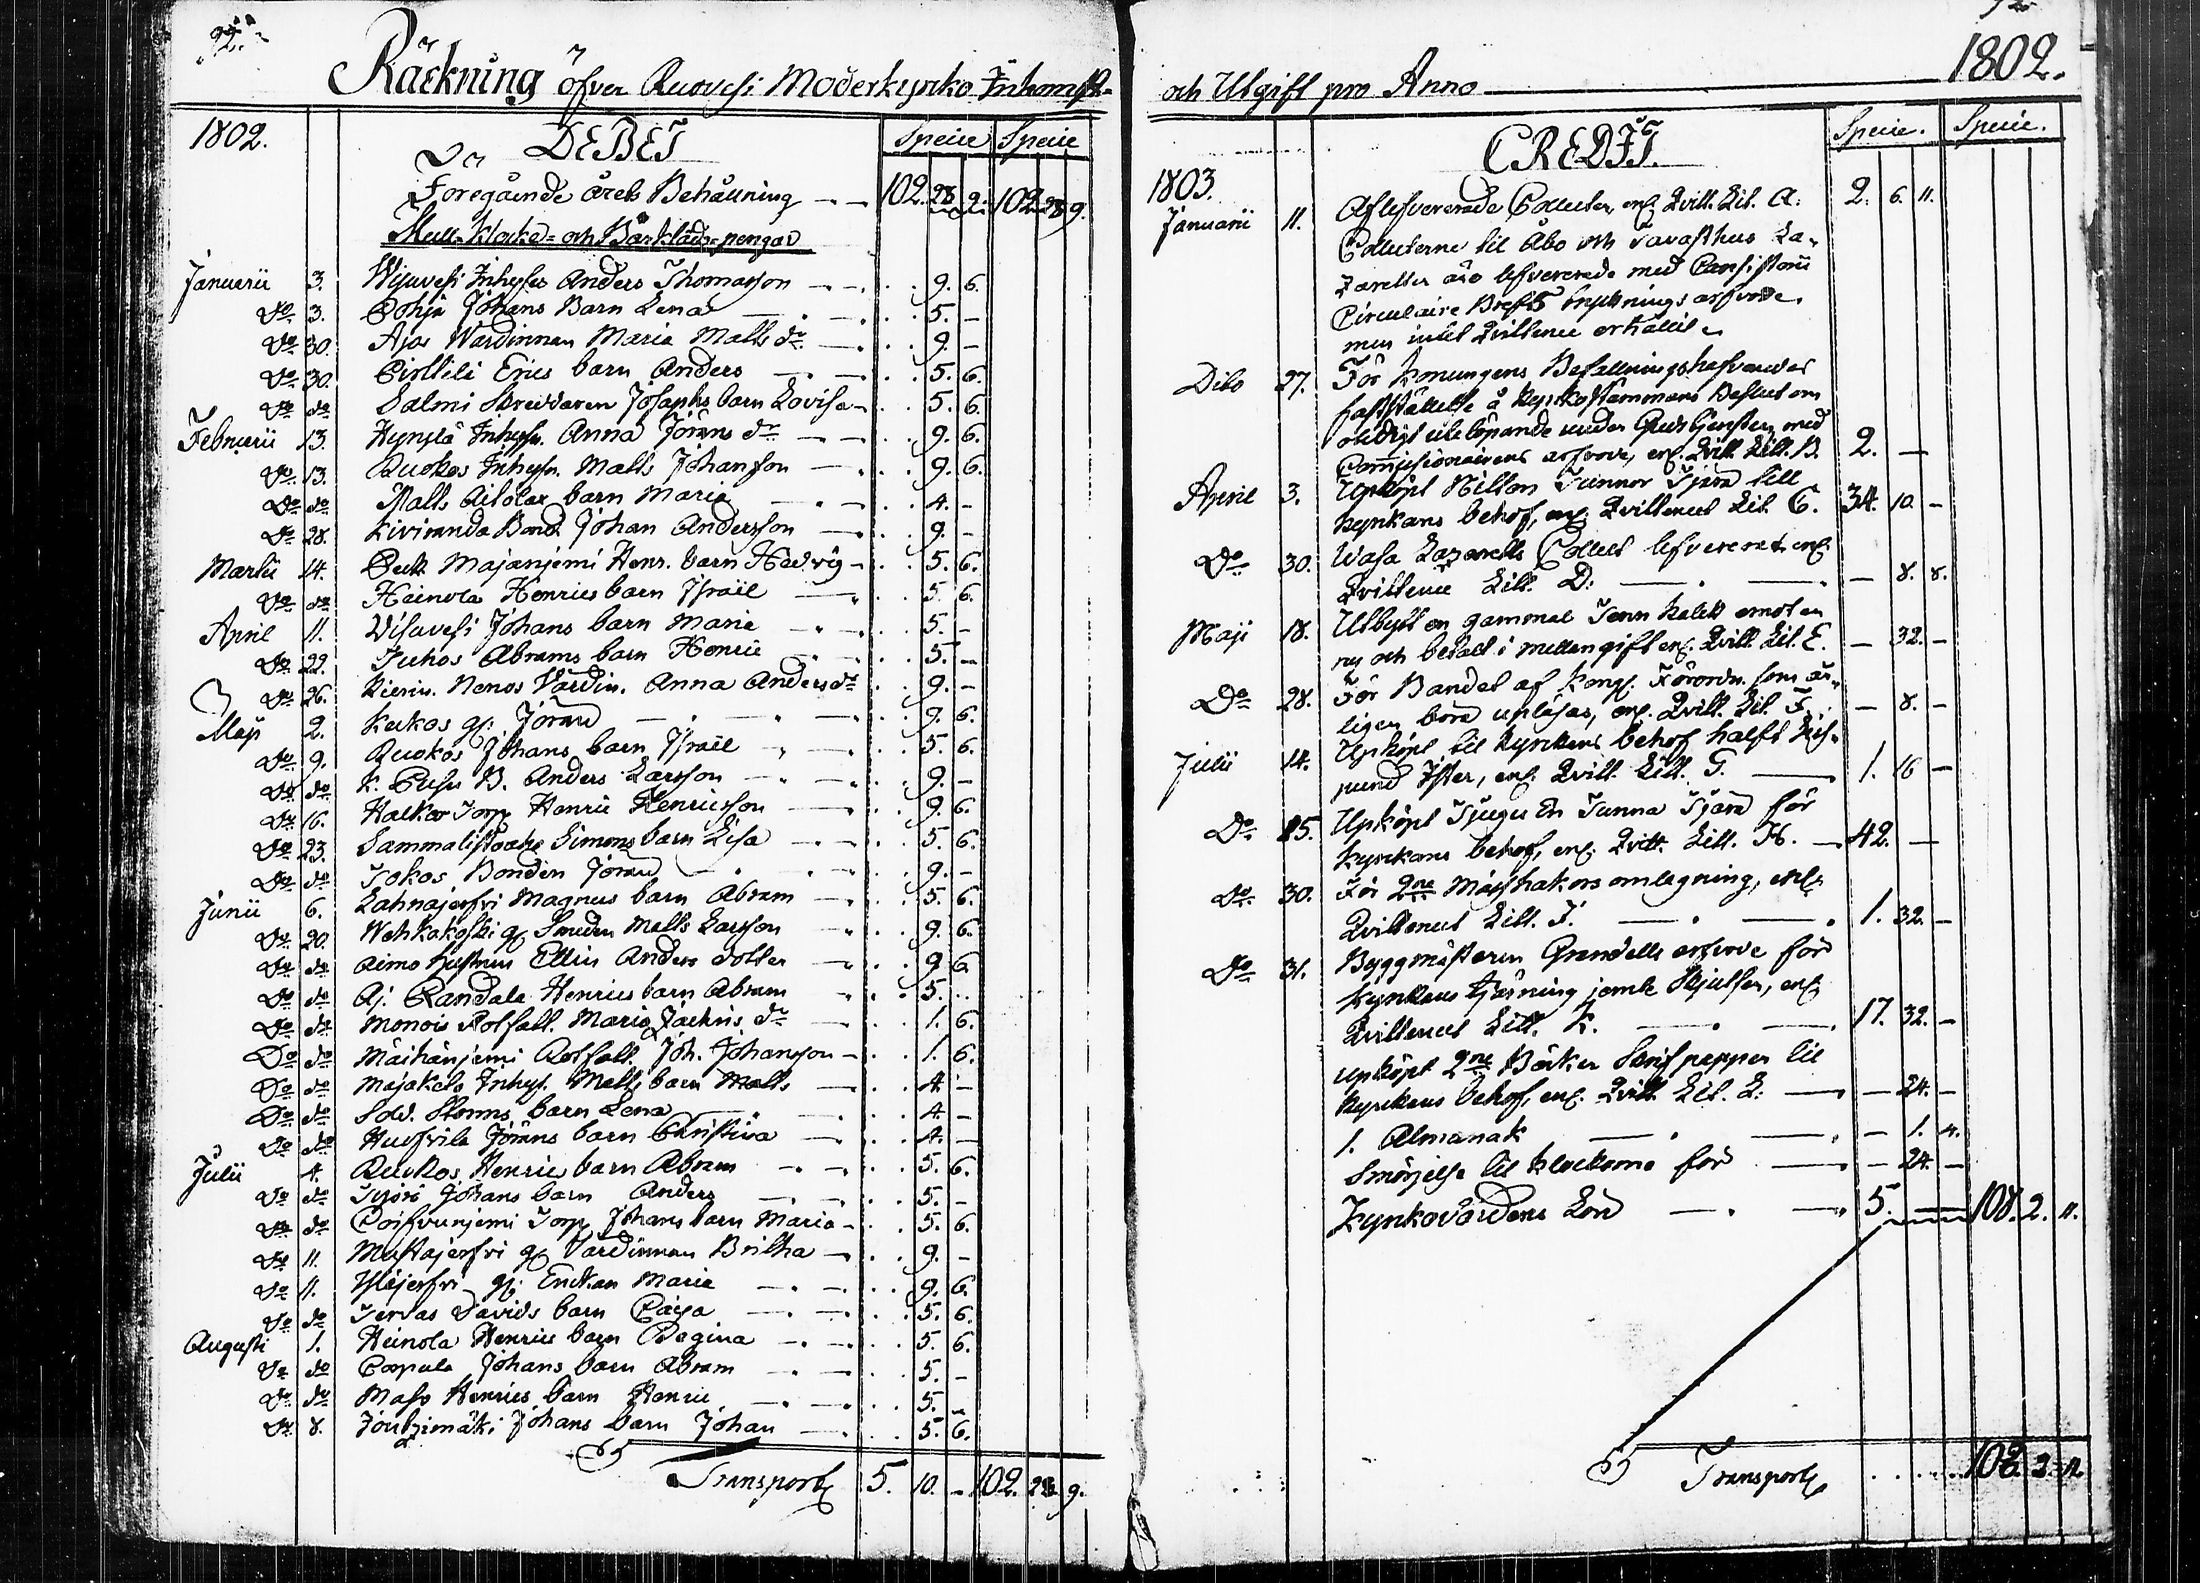 92.
Räckning öfver Ruovesi Moderkyrko Inkomst
1802.
DEBET
Specie Specie
Föregående årets Behållning 102. 28. 9. 102. 28 9.
Mull- Klocke- och Bårklädes-pengar
Januarii 3. Wisuvesi Inhyses Anders Thomasson 9. 6.
Do 3. Pohja Johans Barn Lena 5. -
Do 30. Ajos Wärdinnan Maria Matts dr 9. -
Do 30. Pirttili Erics barn Anders 5. 6.
Do do Salmi Skreddaren Josephs barn Lovisa 5. 6.
Februarii 13. Hynylä Inhyses Anna Jörans dr 9. 6.
Do 13. Ruokos Inhyses Matts Johansson 9. 6.
Do do Matts barn Maria 4. -
Do 28. Kiviranda Bond. Johan Andersson 9. -
Martii 14. Pett. Majanjemi Henr. barn Hedvig 5. 6.
Do do Heinola Henrics barn Israël 5. 6.
April 11. Visuvesi Johans barn Maria 5. -
Do 22. Juhos Abrams barn Henric 5. -
Do 26. Nenos Värdin. Anna Anders dr 9. -
Maji 2. Kukos gl. Jöran 9. 6.
Do 9. Ruokos Johans barn Israël 5. 6.
Do do K. B. Anders Larsson 9. -
Do 16. Torp. Henric Henricsson 9. 6.
Do 23. Simons barn Lisa 5. 6.
Do do Jokos Bonden Jöran 9. -
Junii 6. Lahnajerfvi Magnus barn Abram 5. 6.
Do 20. Wehkakoski gl. Smeden Matts Larsson 9. 6.
Do do Aimo Hustrun Ellin Anders dotter 9 6
Do do Aj. Randala Henrics barn Abram 5. ..
Do do Monois Rotfatt. Maria dr 1. 6.
Do do Rotfatt. Joh. Johansson 1. 6.
Do do Majakels Inhys. Matts barn Matts 4 -
Do do Sold. Storms barn Lena 4 -
Do do Huofvila Jörans barn Christina 4. -
Julii 4. Ruokos Henrics barn Abram 5. 6.
Do do Johans barn Anders 5. -
Do do Torp. Johans barn Maria 5. 6.
Do 11. Mustajerfvi gl. Värdinnan Britha 9. -
Do 11. gl. Enckan Maria 9. 6.
Do do Jervas Davids barn Caisa 5. 6.
Augusti 1. Heinola Henrics barn Regina 5. 6.
Do do Johans barn Abram 5. -
Do do Maso Henrics barn Henric 5. -
Do 8. Johans barn Johan 5. 6.
Transport 5. 10. - 102. 28. 9.
och Utgift pro Anno 1802.
CREDIT.
Specie. Specie.
1803.
Januarii 11. Aflefvererade Collecter, enl. Qvitt. Lit. A. 2. 6. 11.
Collecterne til Åbo och Tavasthus La-
zaretter äro lefvererade med Consistorii
Circulaire Brefs arfvode,
men intet Qvittence erhållit
Dito 27. För Konungens Befallningshafvandes
fastställelse å Kyrkostämmans Beslut om
otidigt utelöpande under Gudstjensten med
Commissionairens arfvode, enl. Qvitt. Litt. B. 2. -
April 3. Upköpt Nitton Tunnor Tjära till
Kyrkans behof, enl. Qvittencet Lit. C. 34. 10. -
Do 30. Wasa Lazaretts Collect lefvererat enl.
Qvittence Litt. D. - 8. 8.
Maji 18. Utbytt en gammal Tenn Kalck emot en
ny och betalt i mellangift enl. Qvitt. Lit. E. - 32. -
Do 28. För Bandet af Kongl. Förordn. som år-
ligen böra upläsas, enl. Qvitt. Lit. F. - 8. -
Julii 14. Upköpt til Kyrckans behof halft Lis-
pund Ister, enl. Qvitt. Litt. G. 1. 16 -
Do 25. Upköpt Tjugu En Tunna Tjära för
Kyrckans behof, enl. Qvitt. Litt. H. 42. -
Do 30. För 2ne Mässhakors omlagning, enl.
Qvittencet Litt. J. 1. 32. -
Do 31. Byggmästaren Grandells arfvode för
Kyrckans tjärning jemte Skjutsen, enl.
Qvittencet Litt. K. 17. 32. -
upköpt 2ne Böcker Skrifpapper til
Kyrckans behof, enl. Qvitt. Lit. L. - 24. -
1. Almanak - 1. 4.
Smörjelse til Klockorna för - 24. -
Kyrkovärdens Lön 5. - 108. 2. 11.
Transport 108. 2. 11.